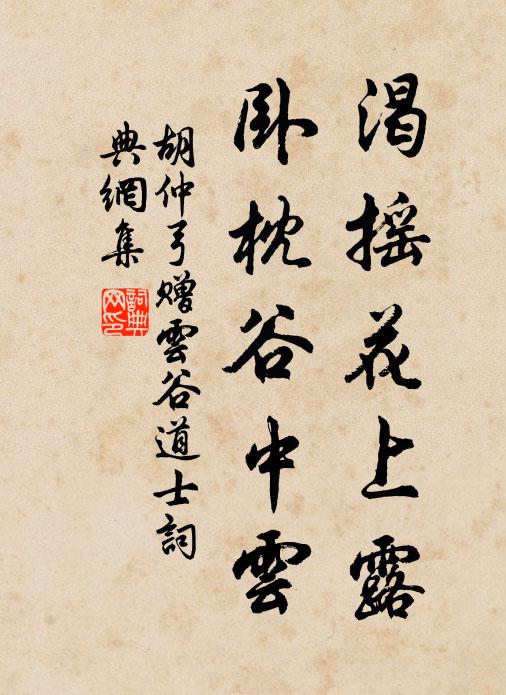 渴摇花上露
卧枕谷中雲
胡仲弓赠雲谷道士詞
典網集
詞典
网印